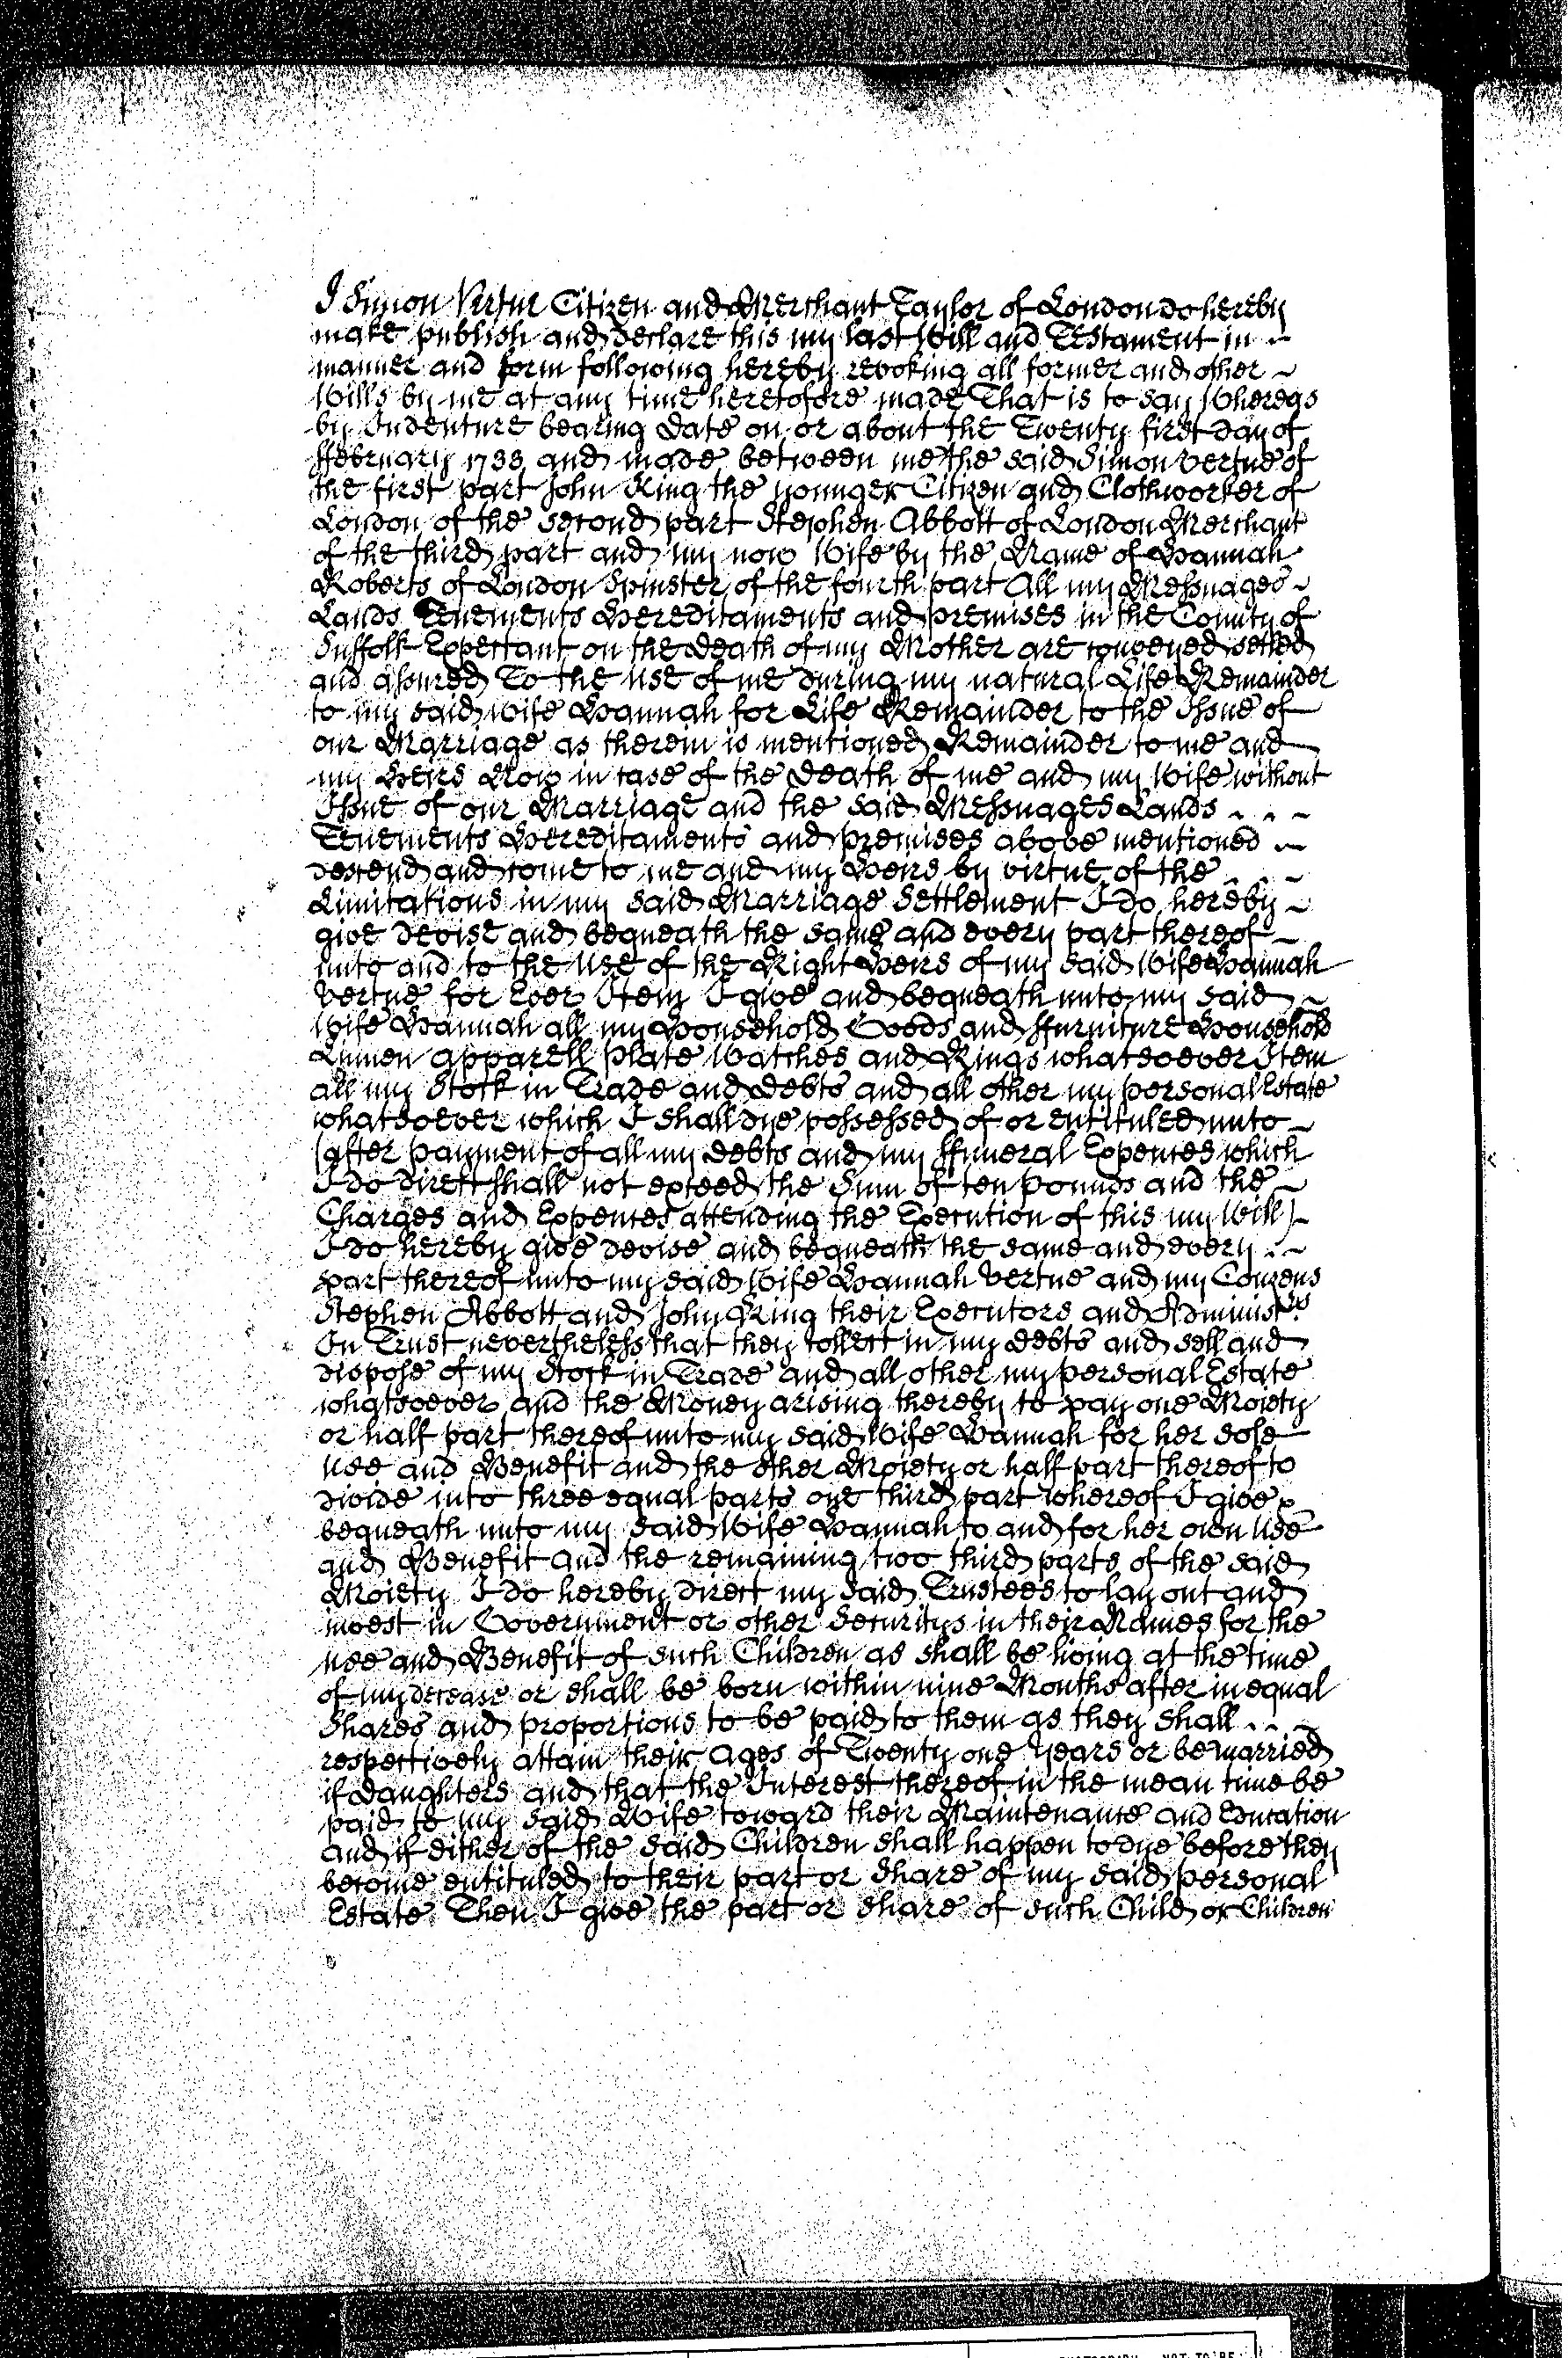 I Simon Vertue Citizen and Merchant Taylor of London do hereby
make publish and declare this my last Will and Testament in
manner and form following hereby revoking all former and other
Wills by me at any time heretofore made That is to say Whereas
by Indenture bearing date on or about the Twenty first day of
ffebruary 1733 and made between me the said Simon Vertue of
the first part John King the younger Citizen and Clothworker of
London of the second part Stephen Abbott of London Merchant
of the third part and my now Wife by the Name of Hannah
Roberts of London Spinster of the fourth part All my Messuages
Lands Tenements Hereditaments and premises in the County of
Suffolk Expectant on the death of my Mother are conveyed setled
and assured To the use of me during my natural Life Remainder
to my said wife Hannah for Life Remainder to the Issue of
our Marriage as therein is mentioned Remainder to me and
my Heirs Now in case of the death of me and my Wife without
Issue of our Marriage and the said Messuages Lands
Tenements Hereditaments and premises above mentioned
descend and come to me and my Heirs by virtue of the
Limitations in my said Marriage Settlement I do hereby
give devise and bequeath the same and every part thereof
unto and to the use of the Right Heirs of my said Wife Hannah
Vertue for Ever Item I give and bequeath unto my said
Wife Hannah all my Household Goods and ffurniture Household
Linnen apparell plate Watches and Rings whatsoever Item
all my Stock in Trade and debts and all other my personal Estate
whatsoever which I shall dye possessed of or entituled unto
(after payment of all my debts and my ffuneral Expences which
I do direct shall not exceed the Sum of ten pounds and the
Charges and Expences attending the Execution of this my Will)
I do hereby give devise and bequeath the same and every
part thereof unto my said Wife Hannah Vertue and my Couzens
Stephen Abbott and John King their Executors and Administrs.
In Trust nevertheless that they collect in my debts and sell and
dispose of my Stock in Trade and all other my personal Estate
whatsoever and the Money arising thereby to pay one Moiety
or half part thereof unto my said Wife Hannah for her sole
use and Benefit and the other Moiety or half part thereof to
divide into three equal parts one third part whereof I give &
bequeath unto my said Wife Hannah to and for her own use
and Benefit and the remaining two third parts of the said
Moiety I do hereby direct my said Trustees to lay out and
invest in Government or other Securitys in their Names for the
use and Benefit of such Children as shall be living at the time
of my decease or shall be born within nine Months after in equal
Shares and proportions to be paid to them as they shall
respectively attain their Ages of Twenty one years or be married
if daughters and that the Interest thereof in the mean time be
paid to my said Wife toward their Maintenance and Education
and if either of the said Children shall happen to dye before they
become entituled to their part or share of my said personal
Estate Then I give the part or share of such Child or Children